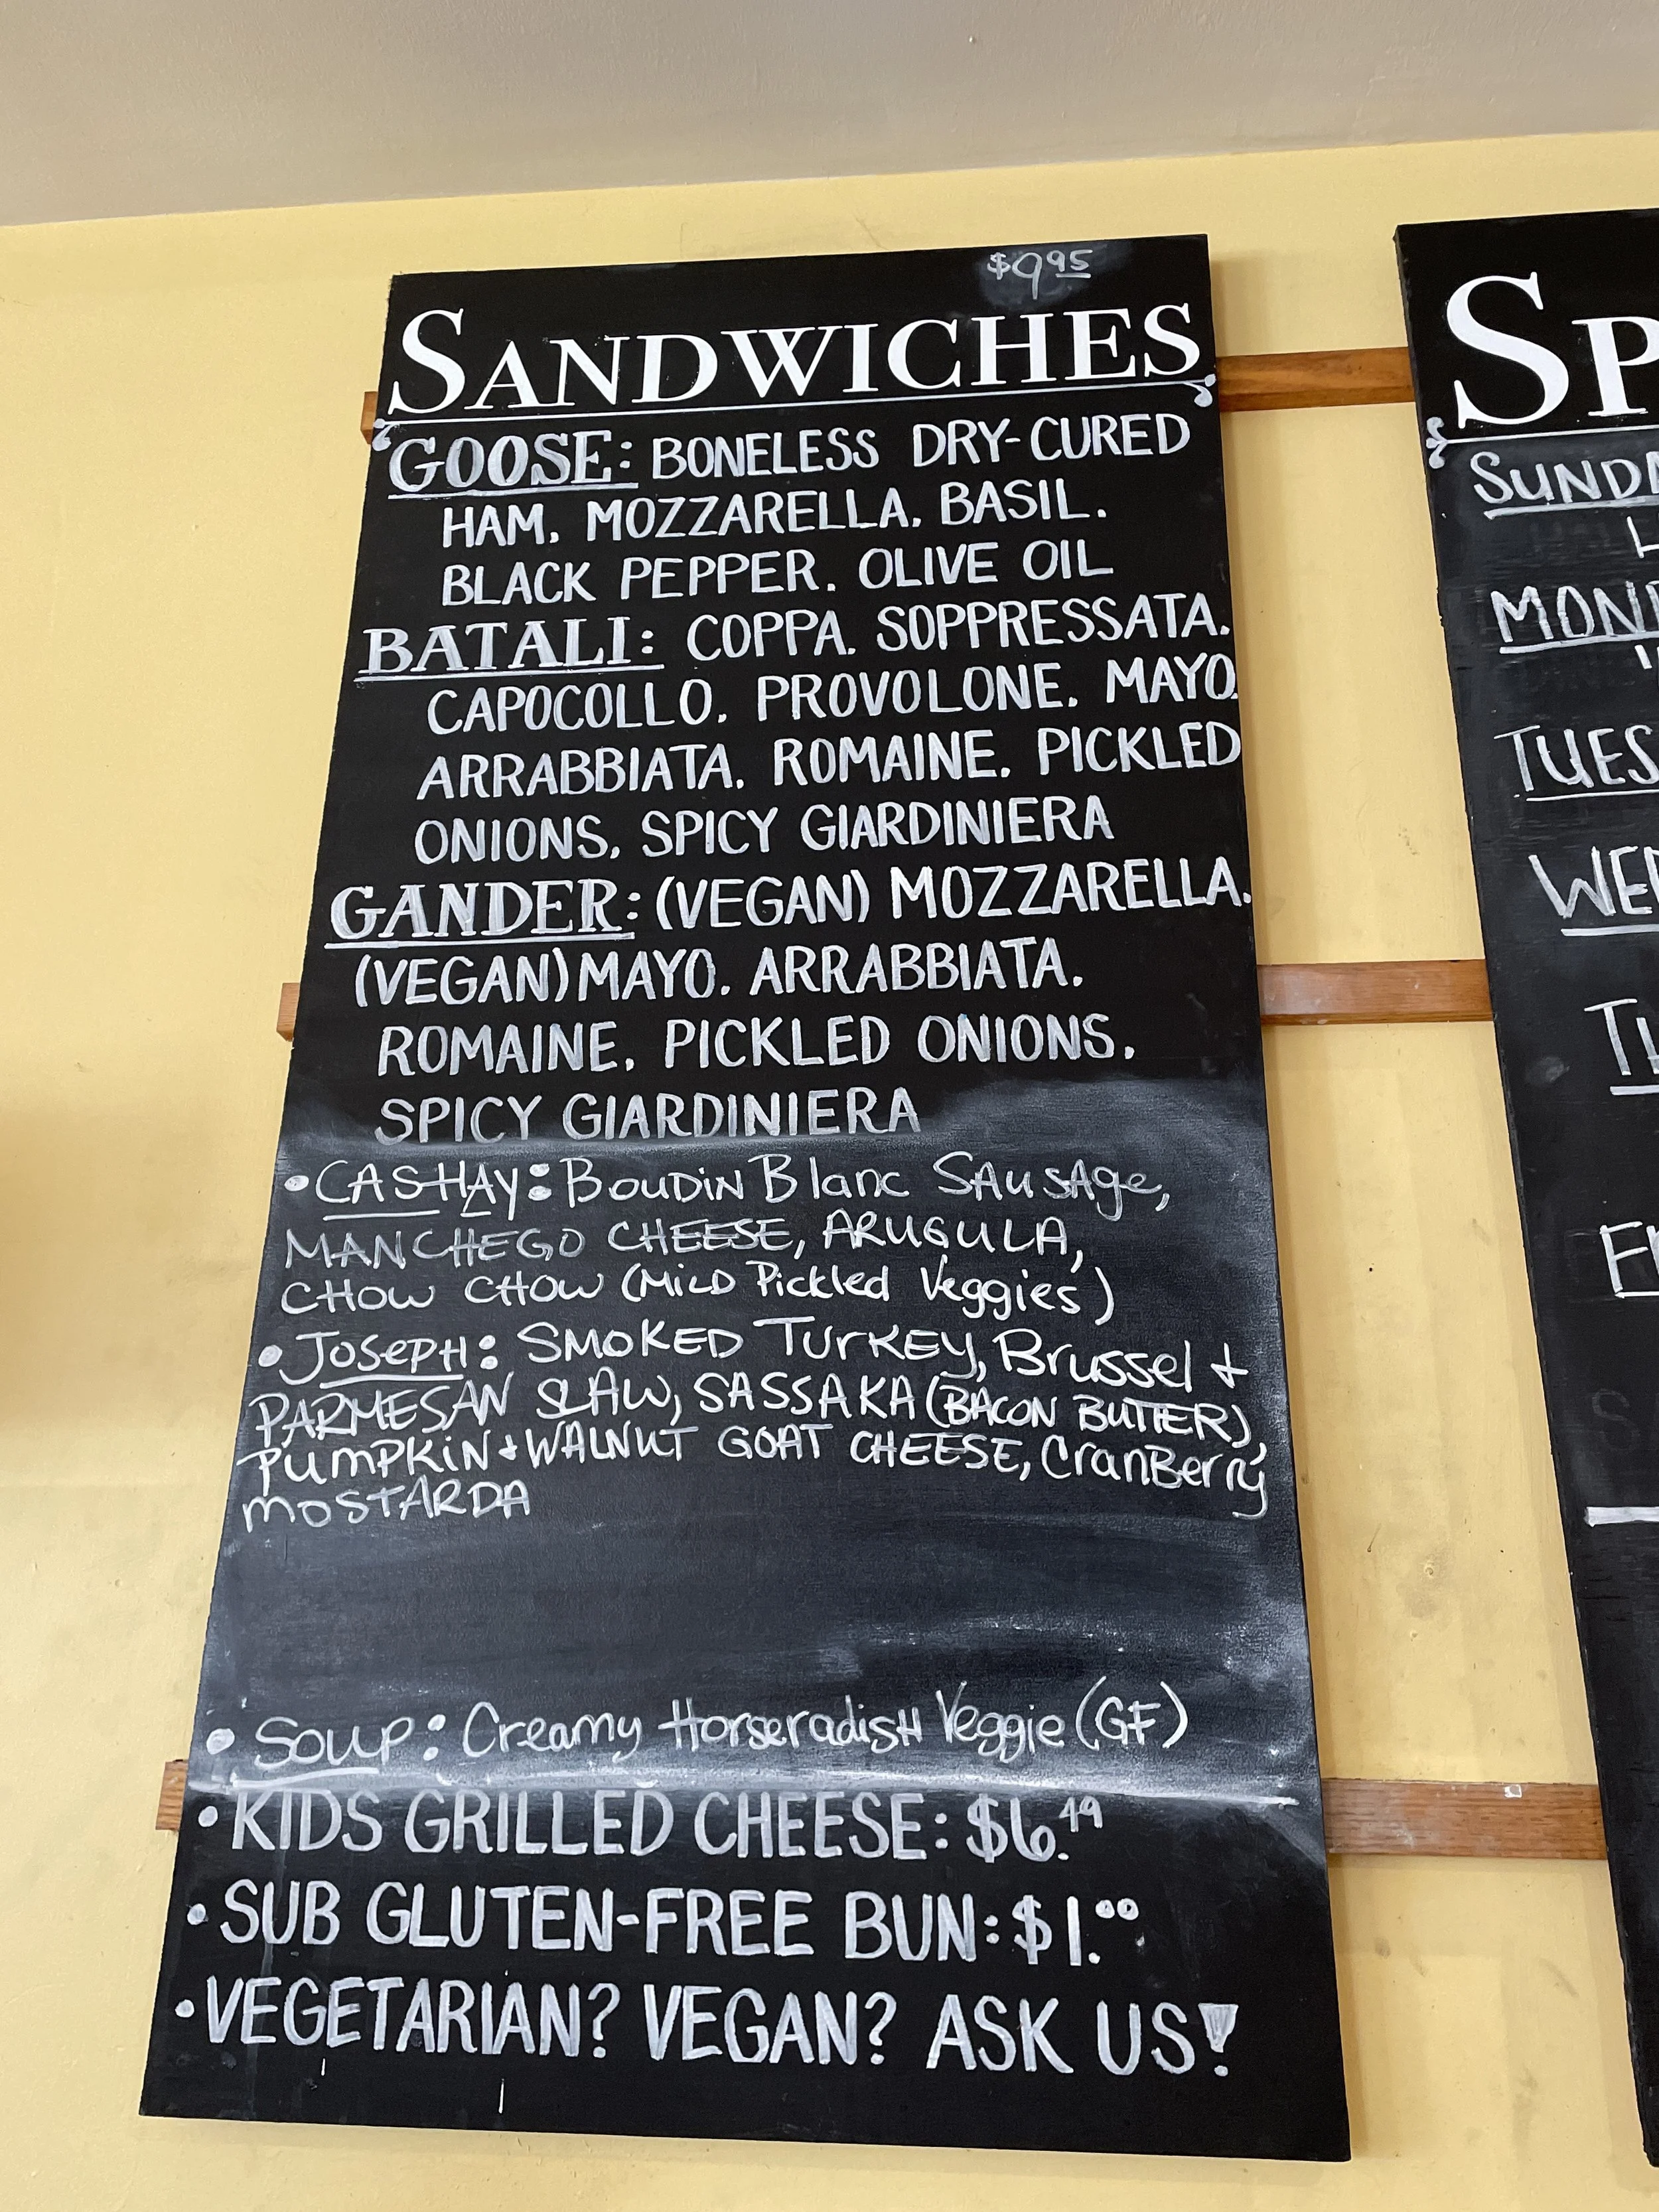 $9.95
SANDWICHES
GOOSE: BONELESS DRY-CURED
HAM, MOZZARELLA, BASIL,
BLACK PEPPER, OLIVE OIL
BATALI: COPPA, SOPPRESSATA,
CAPOCOLLO, PROVOLONE, MAYO,
ARRABBIATA, ROMAINE, PICKLED
ONIONS, SPICY GIARDINIERA
GANDER: (VEGAN) MOZZARELLA,
(VEGAN) MAYO, ARRABBIATA,
ROMAINE, PICKLED ONIONS,
SPICY GIARDINIERA
• CASHAY: BOUDIN Blanc SAUSAge,
MANCHEGO CHEESE, ARUGULA,
CHOW CHOW (MILD Pickled Veggies)
• JOSEPH: SMOKED TURKEY, Brussel +
PARMESAN SLAW, SASSAKA (BACON BUTTER),
PUMPKIN + WALNUT GOAT CHEESE, CranBerry
MOSTARDA
• SOUP: Creamy HorseradisH Veggie (GF)
• KIDS GRILLED CHEESE: $6.49
• SUB GLUTEN-FREE BUN: $1.00
• VEGETARIAN? VEGAN? ASK US!
SP
SUNDA
MON
TUES
WED
TH